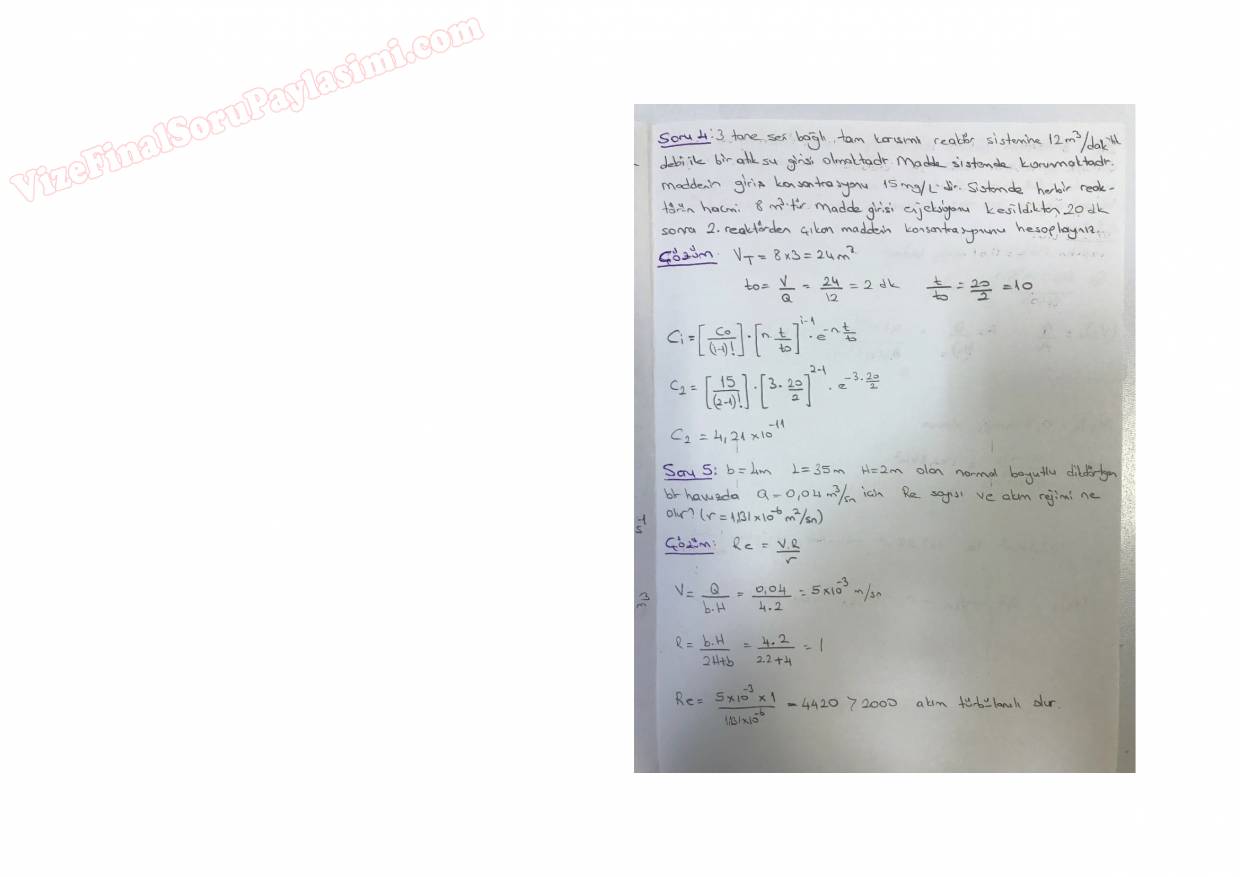 VizeFinalSoruPaylasimi.com
Soru 4: 3 tane seri bağlı, tam karışımlı reaktör sistemine 12 m³/dak'lık
debi ile bir atık su girişi olmaktadır. Madde sistemde korunmaktadır.
Maddenin giriş konsantrasyonu 15 mg/L'dir. Sistemde herbir reak-
törün hacmi 8 m³'tür. Madde girişi enjeksiyonu kesildikten 20 dk
sonra 2. reaktörden çıkan maddenin konsantrasyonunu hesaplayınız.
Çözüm: V_T = 8x3 = 24 m²
t₀ = V/Q = 24/12 = 2 dk t/t₀ = 20/2 = 10
Cᵢ = [C₀/(i-1)!] · [n t/t₀]^(i-1) · e^(-n t/t₀)
C₂ = [15/(2-1)!] · [3 · 20/2]^(2-1) · e^(-3 · 20/2)
C₂ = 4,21 x 10⁻¹¹
Soru 5: b = 4m L = 35m H = 2m olan normal boyutlu dikdörtgen
bir havuzda Q = 0,04 m³/sn için Re sayısı ve akım rejimi ne
olur? (r = 1,131 x 10⁻⁶ m²/sn)
Çözüm: Re = V.R/r
V = Q/b.H = 0,04/4.2 = 5 x 10⁻³ m/sn
R = b.H/2H+b = 4.2/2.2+4 = 1
Re = 5 x 10⁻³ x 1/1,131 x 10⁻⁶ = 4420 > 2000 akım türbülanslı olur.